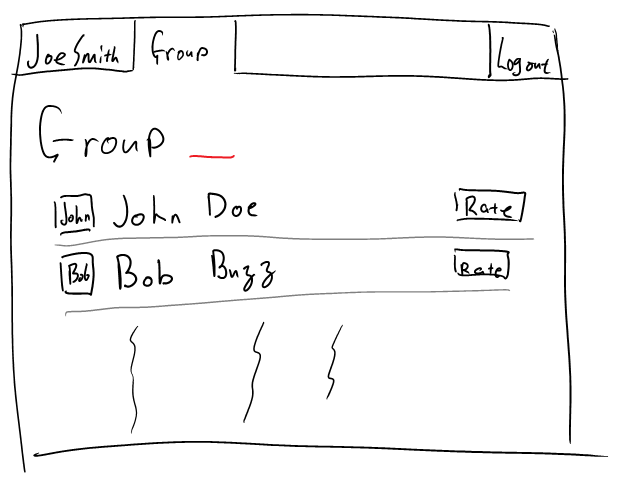 Joe Smith Group Logout
Group
John John Doe Rate
Bob Bob Buzz Rate